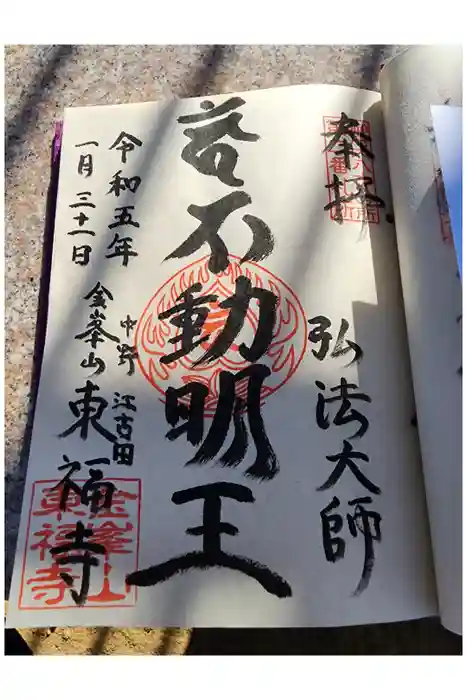 奉拝
弘法大師
不動明王
中野 江古田
金峯山 東福寺
令和五年
一月三十一日
金峯山
東福寺